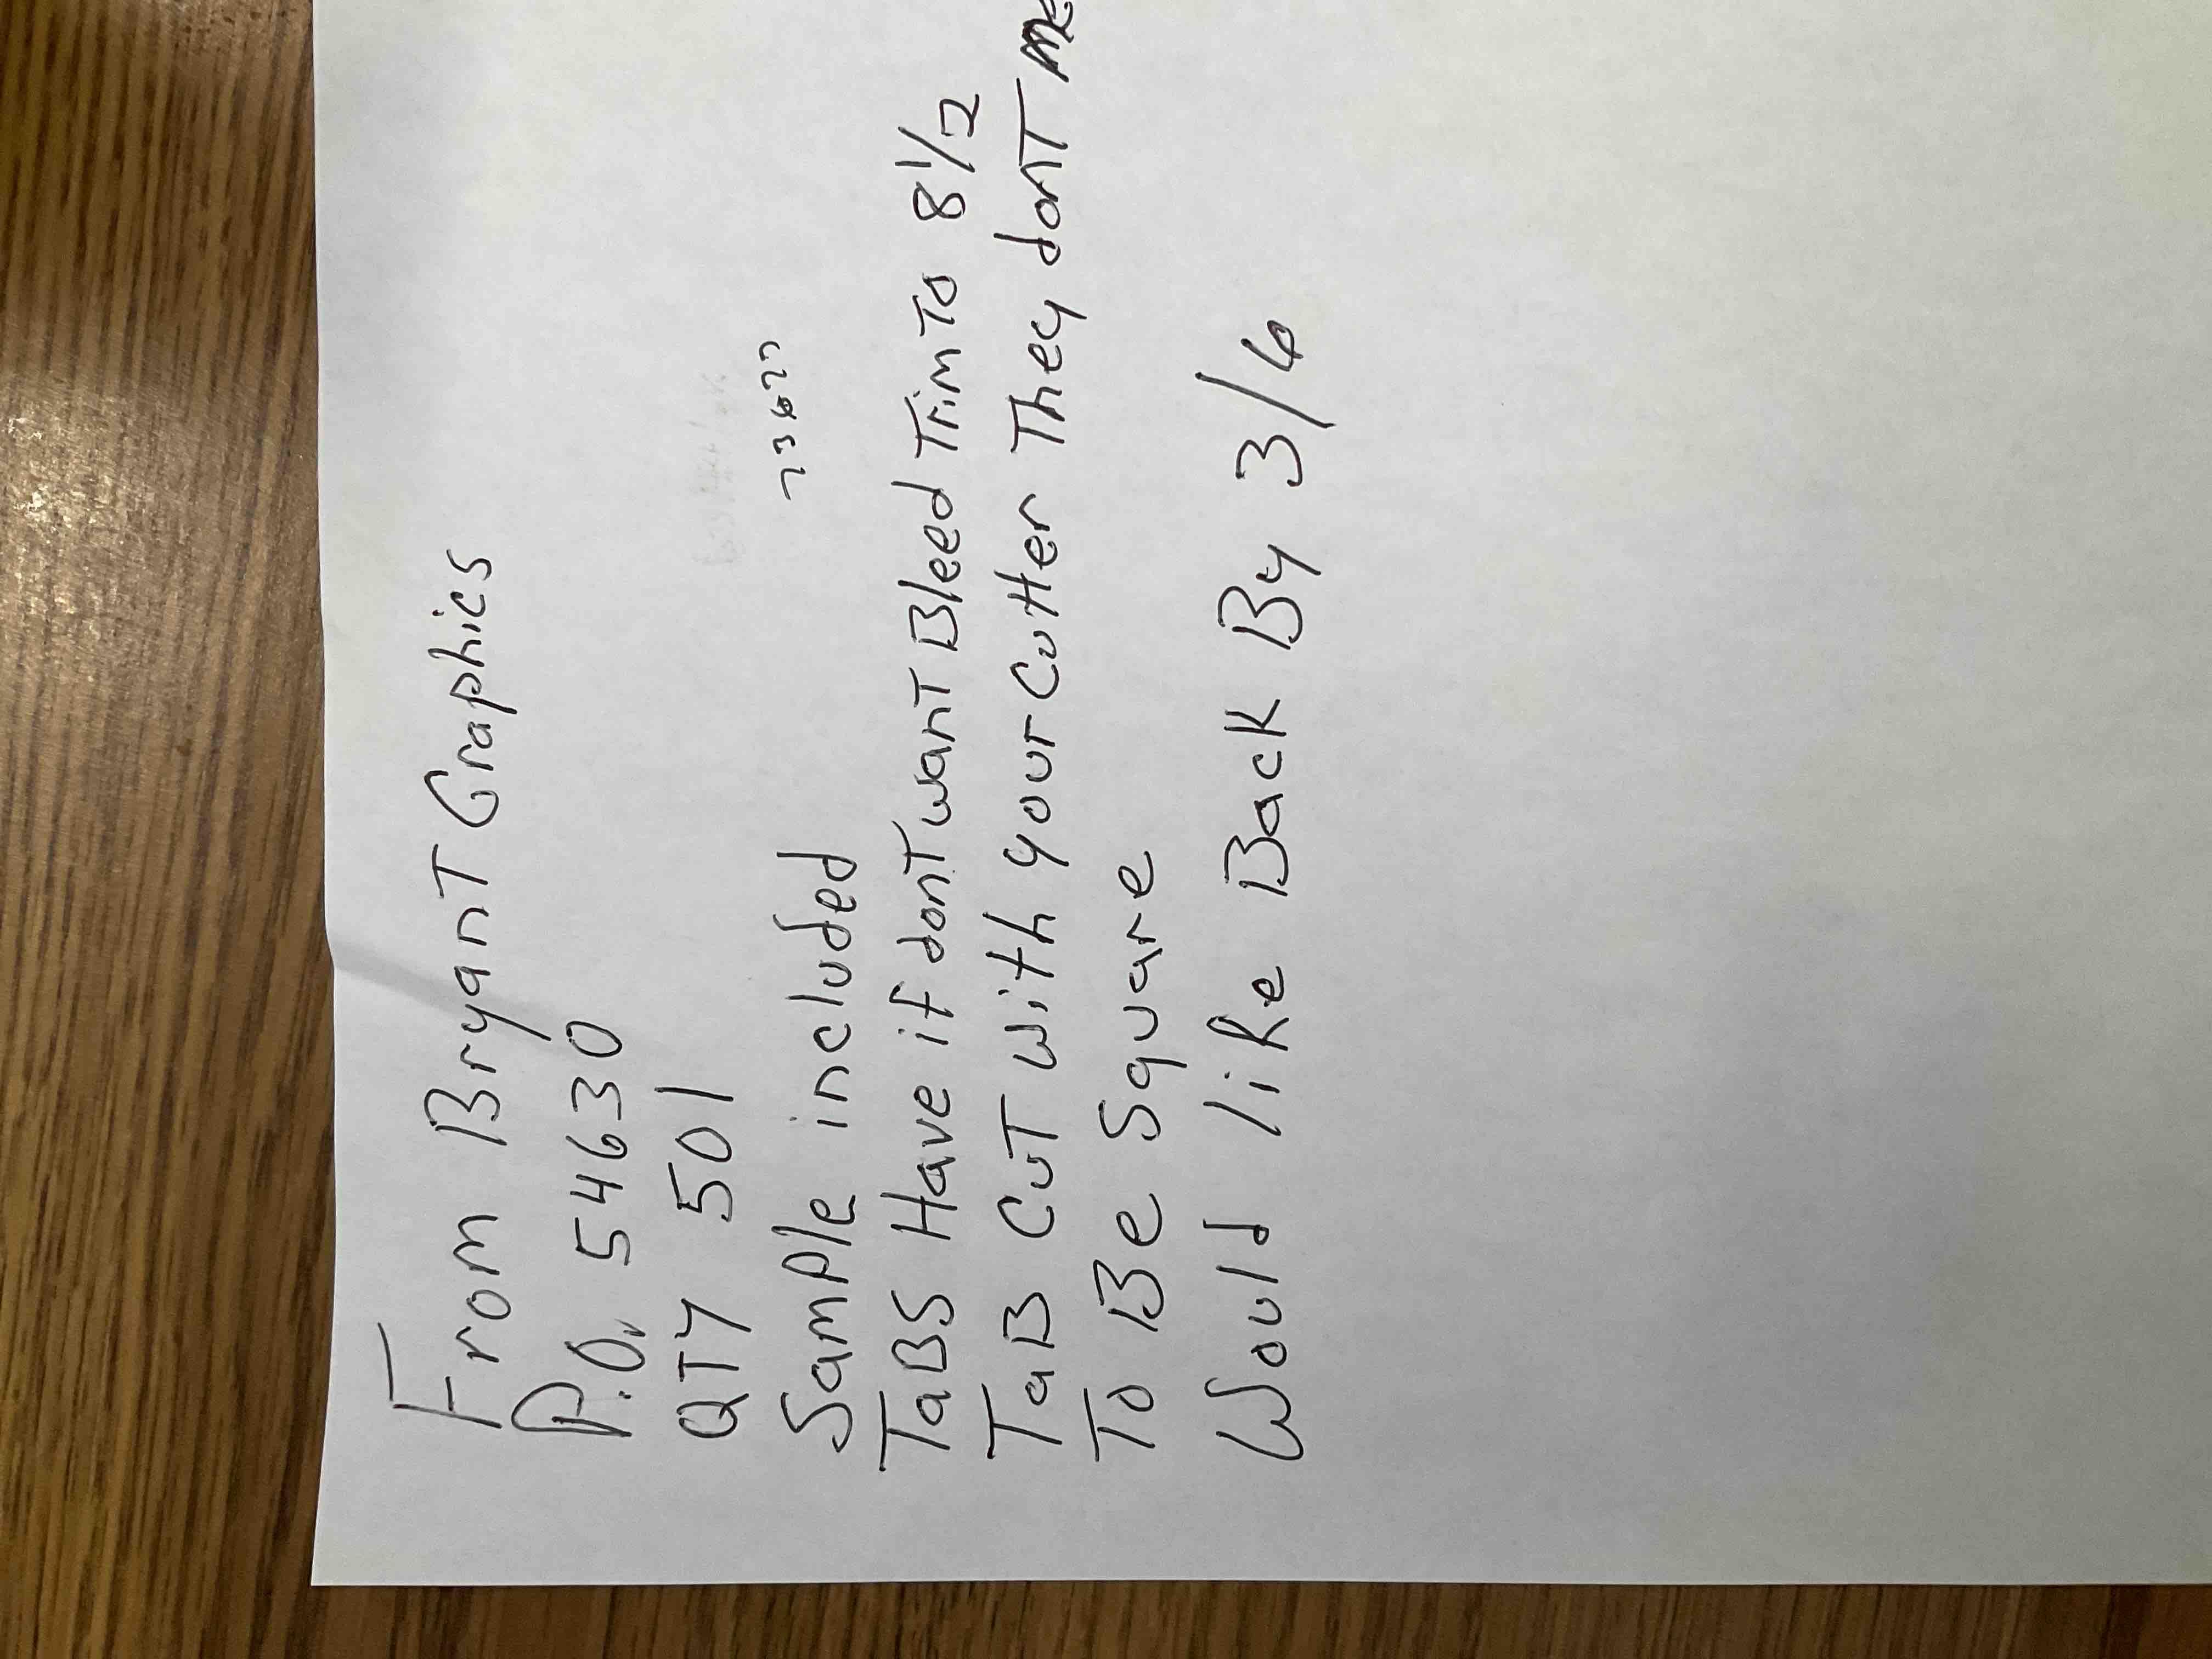 From Bryant Graphics
P.O. 54630
QTY 501
Sample included 73677
TaBS Have if donT wanT Bleed Trim To 8 1/2
TaB CuT with your Cutter They donT
To Be Square
Would like Back By 3/6